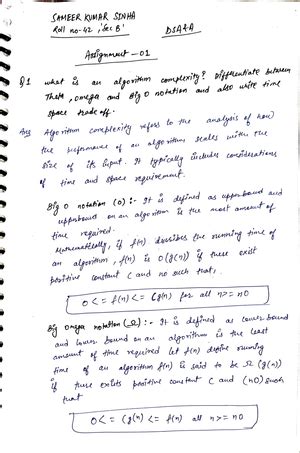 SAMEER KUMAR SINHA
Roll no-42, 'Sec B'
DSA4A
Assignment - 01
Q.1 what is an algorithm complexity? Differentiate between
Theta, omega and Big O notation and also write time
space trade off.
Ans Algorithm complexity refers to the analysis of how
the performance of an algorithm scales with the
size of its input. It typically includes considerations
of time and space requirement.
Big O notation (O) :- It is defined as upperbound and
upperbound on an algorithm is the most amount of
time required.
Mathematically, if f(n) describes the running time of
an algorithm, f(n) is O(g(n)) if there exist
positive constant C and no such that,
0 <= f(n) <= Cg(n) for all n >= n0
Big Omega notation (Ω) :- It is defined as lower bound
and lower bound on an algorithm is the least
amount of time required let f(n) define running
time of an algorithm f(n) is said to be Ω (g(n))
if there exists positive constant C and (n0) such
that
0 <= Cg(n) <= f(n) all n >= n0